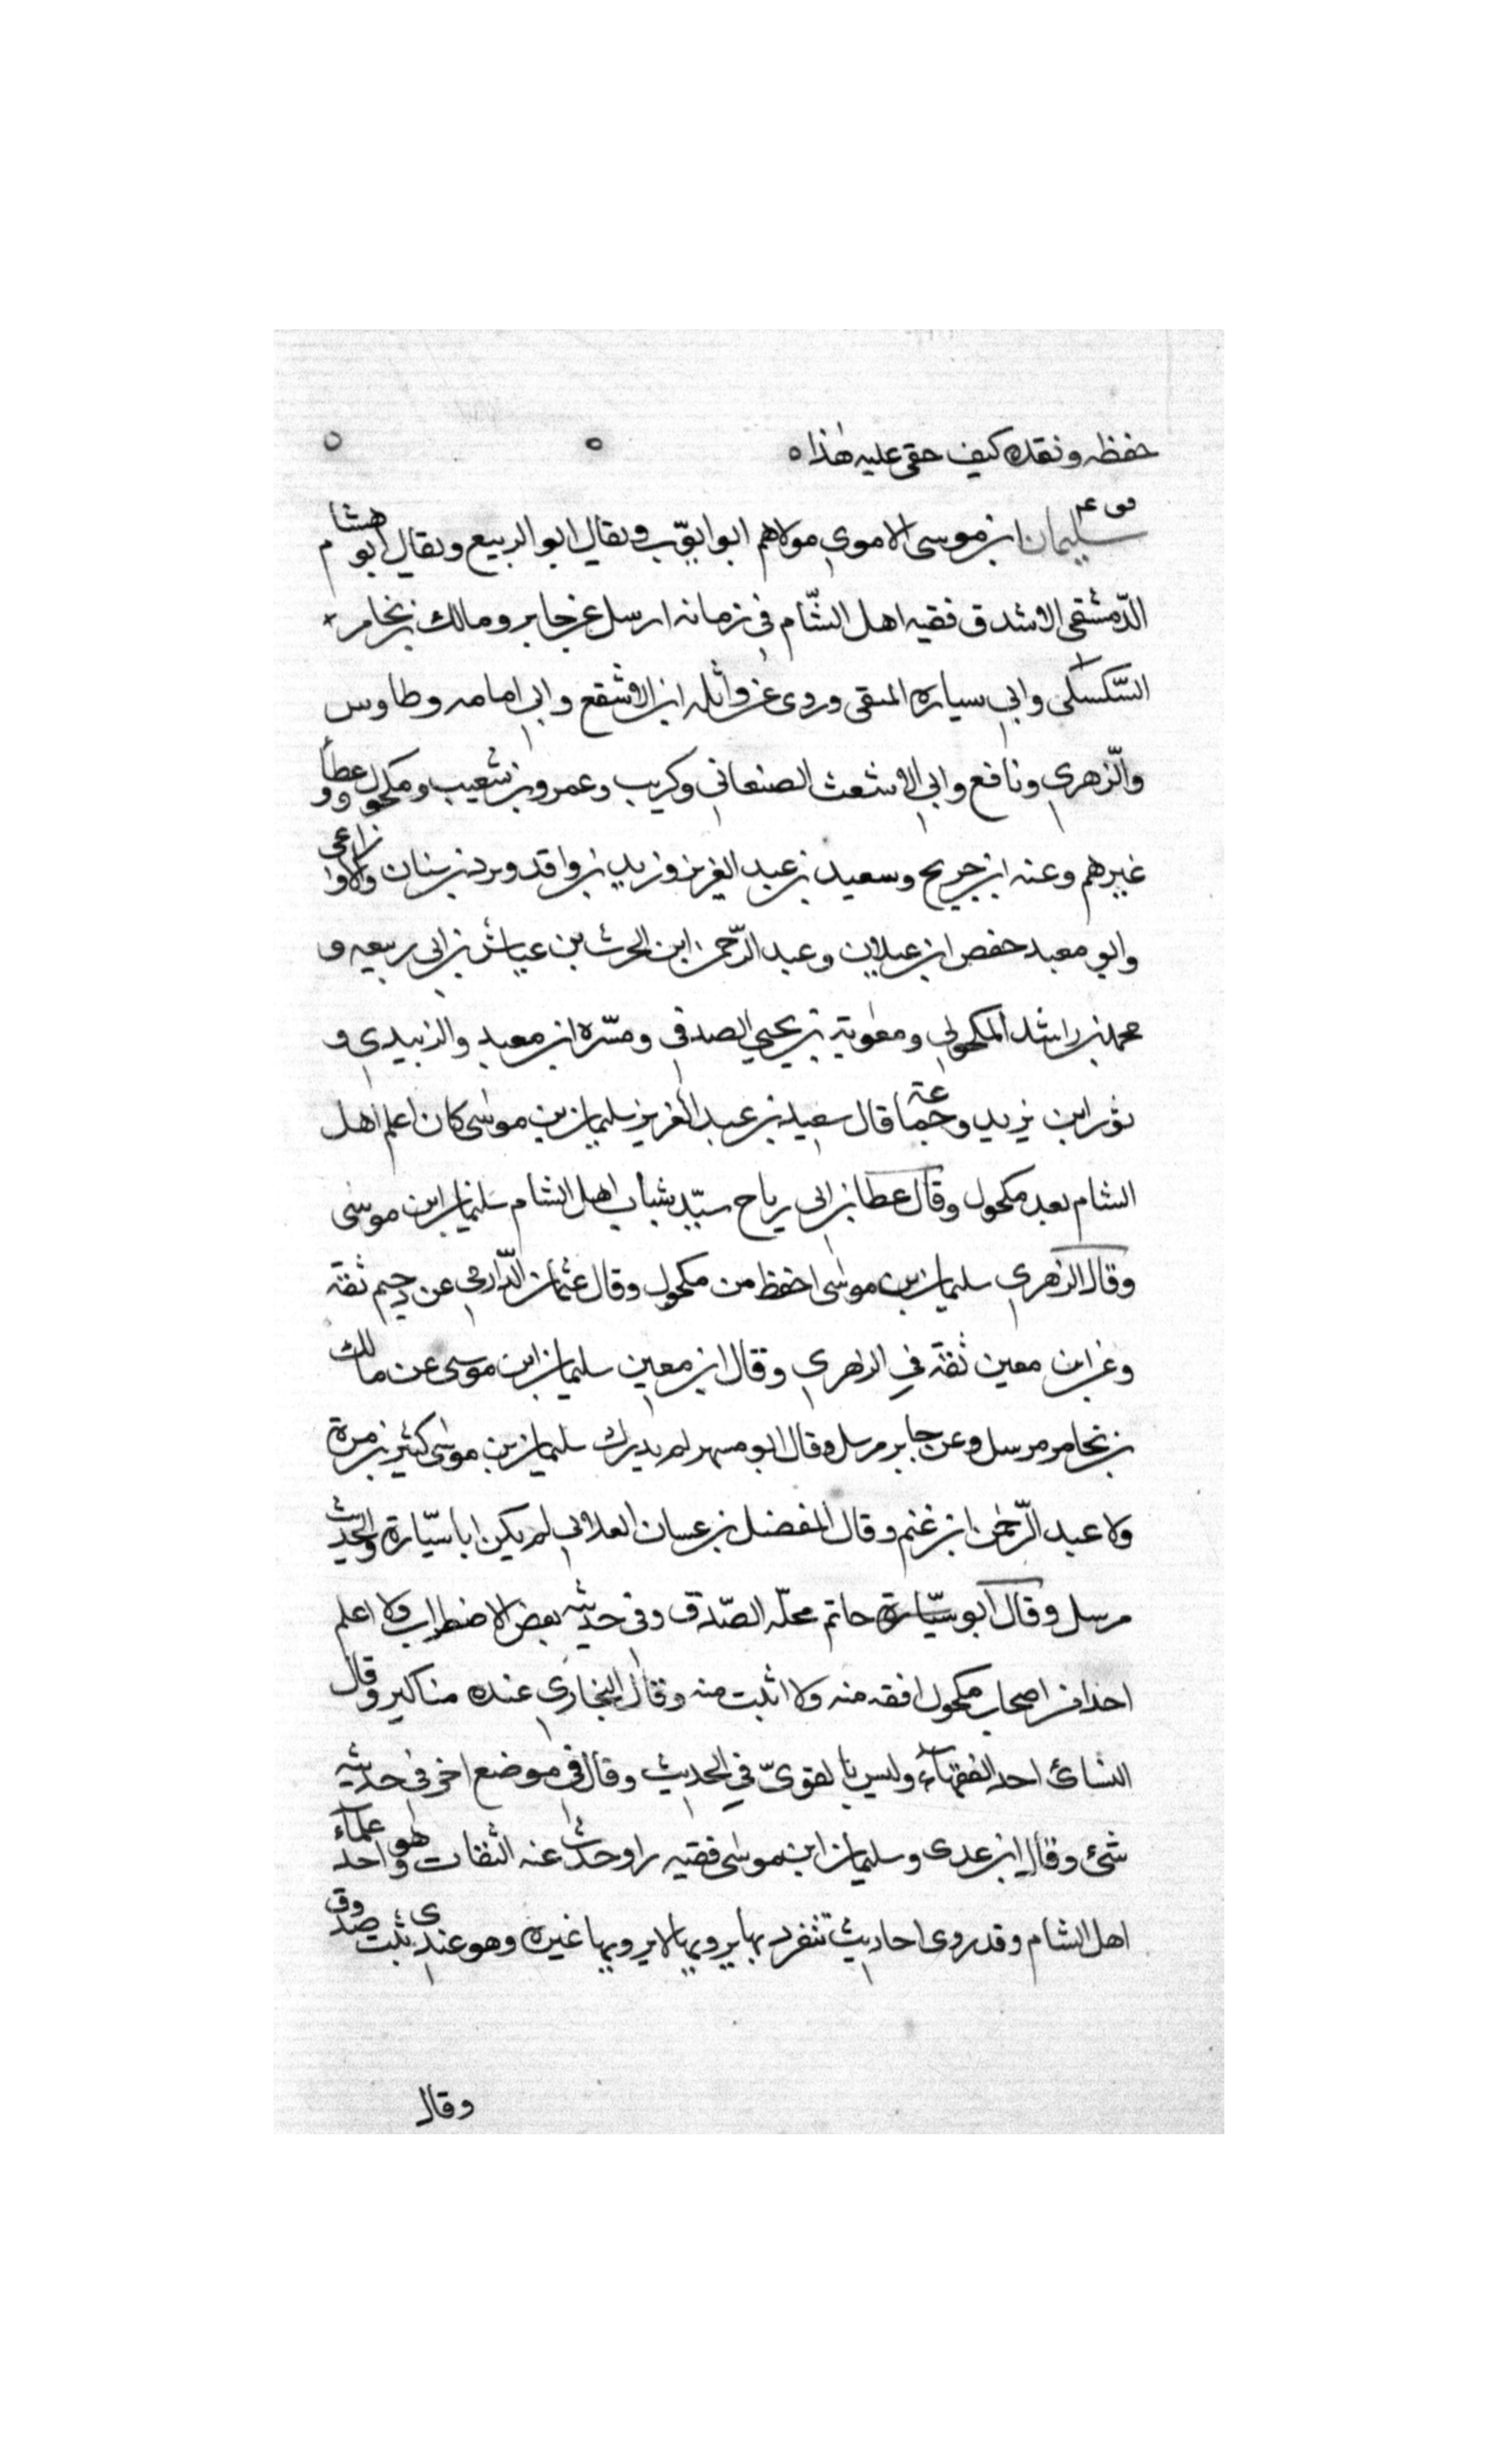 حفظه ونقده كيف خفي عليه هذا ه ه ه
سليمان ابن موسى الاموي مولاهم ابو ايوّب ويقال ابو الربيع ويقال ابو هشام
الدّمشقي الاشدق فقيه اهل الشّام في زمانه ارسل عن جابر ومالك بن يخامر
السّكسكي وابي سياره المتقي وروى عن واثله ابن الاسقع وابي امامه وطاوس
والزّهري ونافع وابي الاشعث الصنعاني وكريب وعمرو بن شعيب ومكحول وعطأ و
غيرهم وعنه ابن جريح وسعيد بن عبد العزيز وزيد بن واقد وبرد بن سنان والاوزاعي
وابو معبد حفص ابن غيلان وعبد الرّحمن ابن الحرث بن عياش بن ابي ربيعه و
محمد بن راشد المكحولي ومعٰوية بن يحيي الصدفي ومسّرة ابن معبد والزبيدي و
ثور ابن يزيد وجماعة قال سعيد بن عبد العزيز سليمان بن موسٰى كان اعلم اهل
الشام بعد مكحول وقال عطا بن ابي رباح سيّد شباب اهل الشام سليمان ابن موسٰى
وقال الزهري سليمان بن موسٰى احفظ من مكحول وقال عثمان الدّارمي عن دحيم ثقة
وعن ابن معين ثقة في الزهري وقال ابن معين سليمان ابن موسى عن مالك
بن يخامر مرسل وعن جابر مرسل وقال ابو مسهر لم يدرك سليمان بن موسٰى كثير بن مرة
ولا عبد الرّحمٰن ابن غنم وقال المفضل بن غسان الغلابي لم يكن ابا سيّارة والحديث
مرسل وقال ابو سيّارة حاتم محلّه الصّدق وفي حديثه بعض الاضطراب ولا اعلم
احدا من اصحاب مكحول افقه منه ولا اثبت منه وقال البخاري عنده مناكير وقال
النسائ احد الفقهاء وليس بالقويّ في الحديث وقال في موضع اخر في حديثه
شئ وقال ابن عدى وسليمان ابن موسٰى فقيه راو حدث عنه الثقات وهو احد علماء
اهل الشام وقد روى احاديث تنفرد بها يرويها لا يرويها غيره وهو عندي ثبت صدوق
وقال